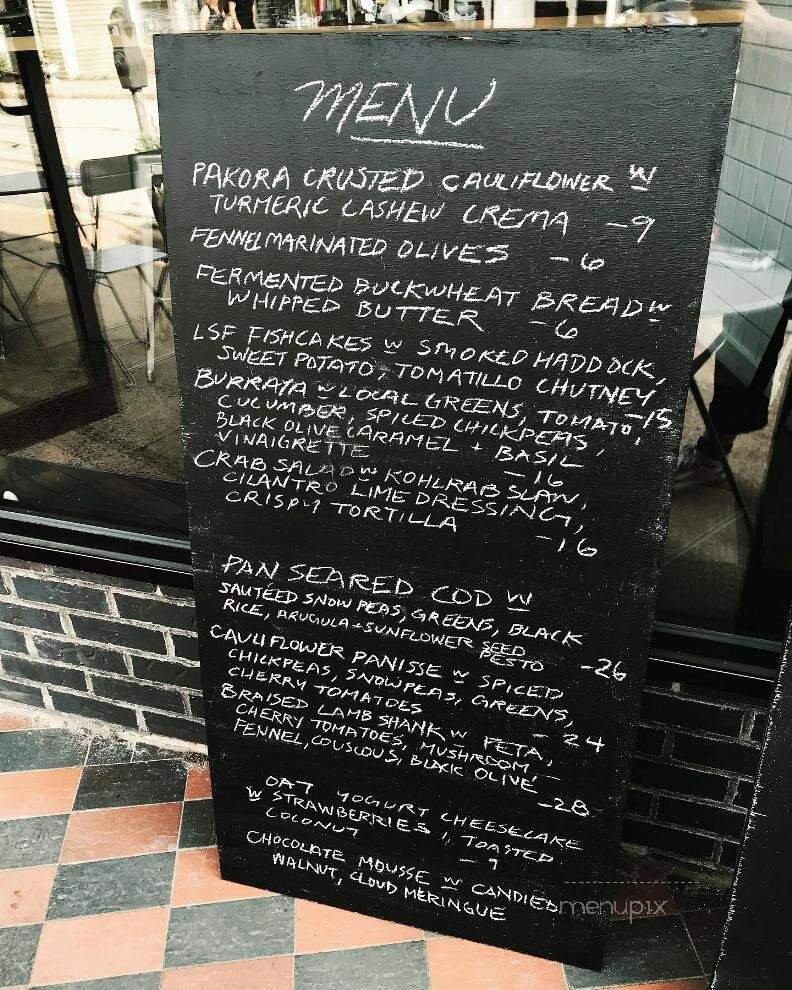 MENU
PAKORA CRUSTED CAULIFLOWER W
TURMERIC CASHEW CREMA -9
FENNEL MARINATED OLIVES -6
FERMENTED BUCKWHEAT BREAD W
WHIPPED BUTTER -6
LSF FISHCAKES W SMOKED HADDOCK,
SWEET POTATO, TOMATILLO CHUTNEY
-15
BURRATA W LOCAL GREENS, TOMATO,
CUCUMBER, SPICED CHICKPEAS,
BLACK OLIVE CARAMEL + BASIL
VINAIGRETTE -16
CRAB SALAD W KOHLRAB SLAW,
CILANTRO LIME DRESSING,
CRISPY TORTILLA -16
PAN SEARED COD W
SAUTÉED SNOW PEAS, GREENS, BLACK
RICE, ARUGULA + SUNFLOWER SEED
PESTO -26
CAULIFLOWER PANISSE W SPICED
CHICKPEAS, SNOWPEAS, GREENS,
CHERRY TOMATOES - 24
BRAISED LAMB SHANK W FETA,
CHERRY TOMATOES, MUSHROOM,
FENNEL, COUSCOUS, BLACK OLIVE
-28
OAT YOGURT CHEESECAKE
W STRAWBERRIES, TOASTED
COCONUT -9
CHOCOLATE MOUSSE W CANDIED
WALNUT, CLOUD MERINGUE
menupix